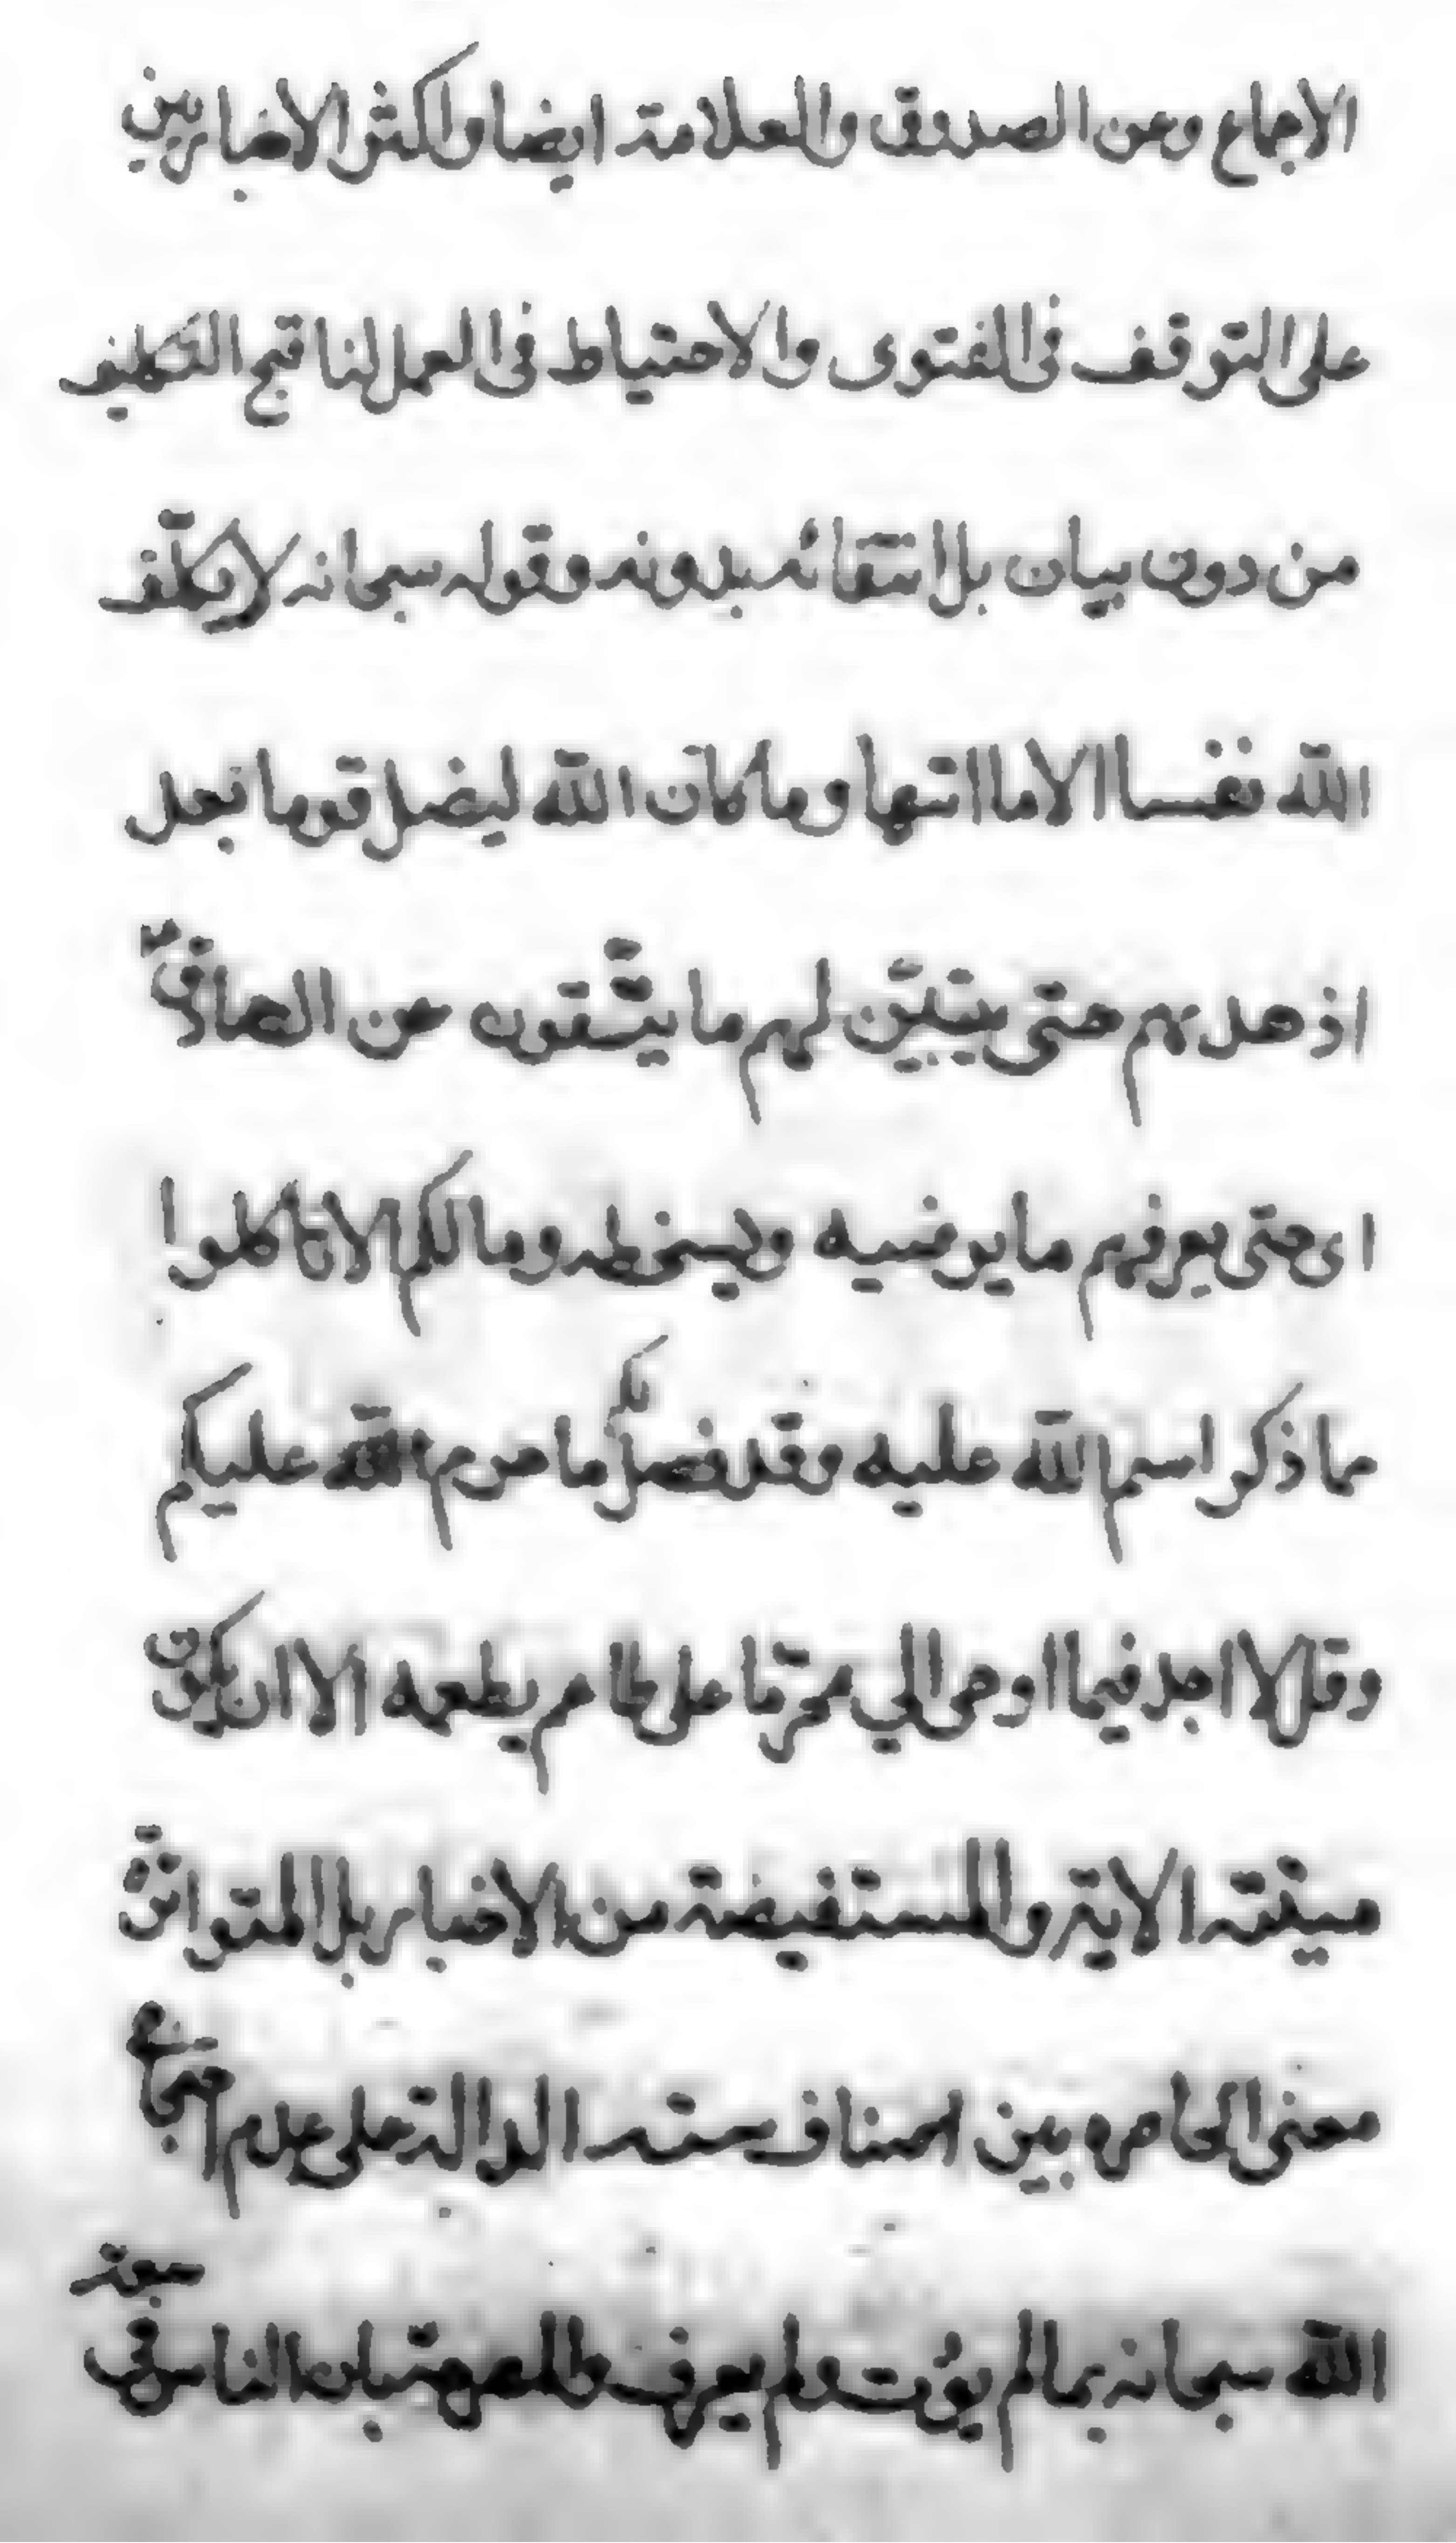 الاجماع وعن الصدوق والعلامة ايضا واكثر الاخباريين
على التوقف فى الفتوى والاحتياط فى العمل لنا قبح التكليف
من دون بيان بل انتقائه بدونه وقوله سبحانه لا يكلّف
الله نفسا الا ما اتيها وما كان الله ليضل قوما بعد
اذ هديهم حتى يتبيّن لهم ما يتّقون عن الصادق
اى حتى يعرفهم ما يرضيه ويسخطه وما لكم الا تاكلوا
مما ذكر اسم الله عليه وقد فصل لكم ما حرم الله عليكم
وقل لا اجد فيما اوحى الي محرّما على طاعم يطعمه الا ان يكون
ميتة الاية والمستفيضة من الاخبار بل المتواترة
معنى الحاصرة بين اصناف ستة الدالة على عدم احتجاج
الله سبحانه بما لم يؤت ولم يعرف الناس فى سعة